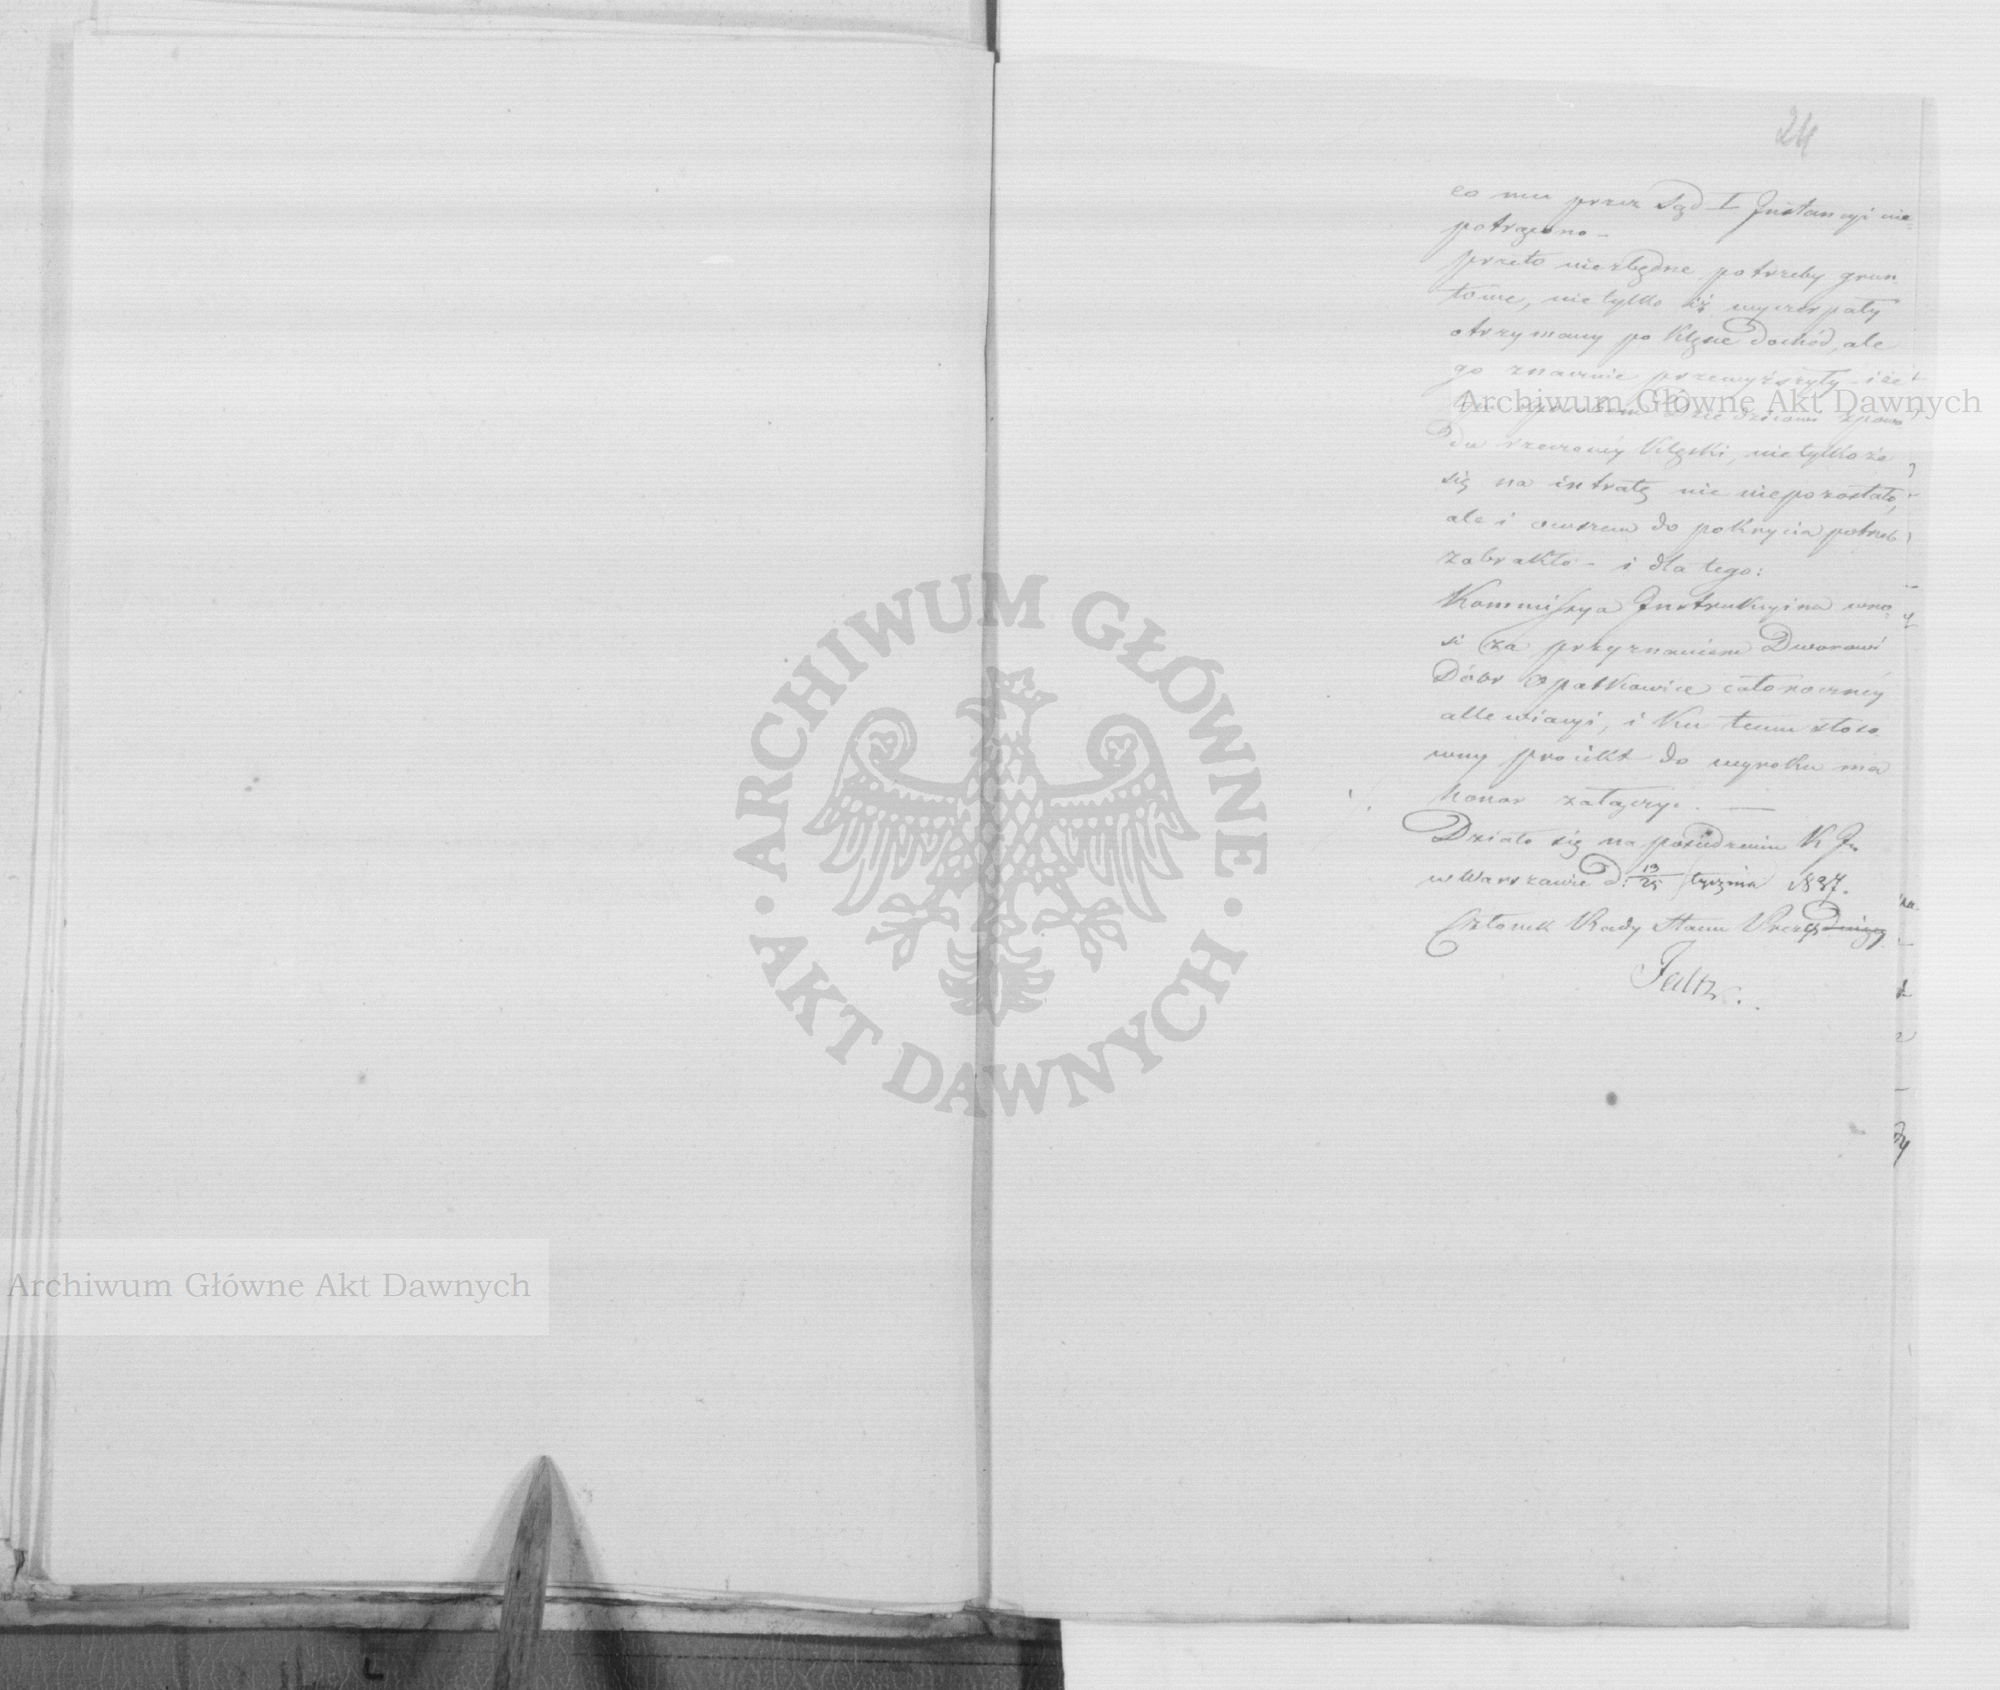 24
co mu przez Sąd I Instancyi nie
potrącono –
przeto niezbędne potrzeby grun
towe, nie tylko iż wyczerpały
otrzymany po Klęsce Dochód, ale
go znacznie przewyższyły – i że
tym sposobem Dziedzicowi z powo
du rzeczonéy Klęski, nie tylko że
się na intratę nic niepozostało,
ale i owszem do pokrycia potrzeb
zabrakło – i dla tego:
Kommissya Instrukcyina wno
si za przyznaniem Dworowi
Dóbr Opatkowice całorocznéy
allewiacyi, i Ku temu stoso
wny proiekt do wyroku ma
honor załączyć. —
Działo się na posiedzeniu K In
w Warszawie D. 13/25 stycznia 1837.
Członek Rady Stanu Prezyduiący
ARCHIWUM GŁÓWNE · AKT DAWNYCH ·
Archiwum Główne Akt Dawnych
Archiwum Główne Akt Dawnych